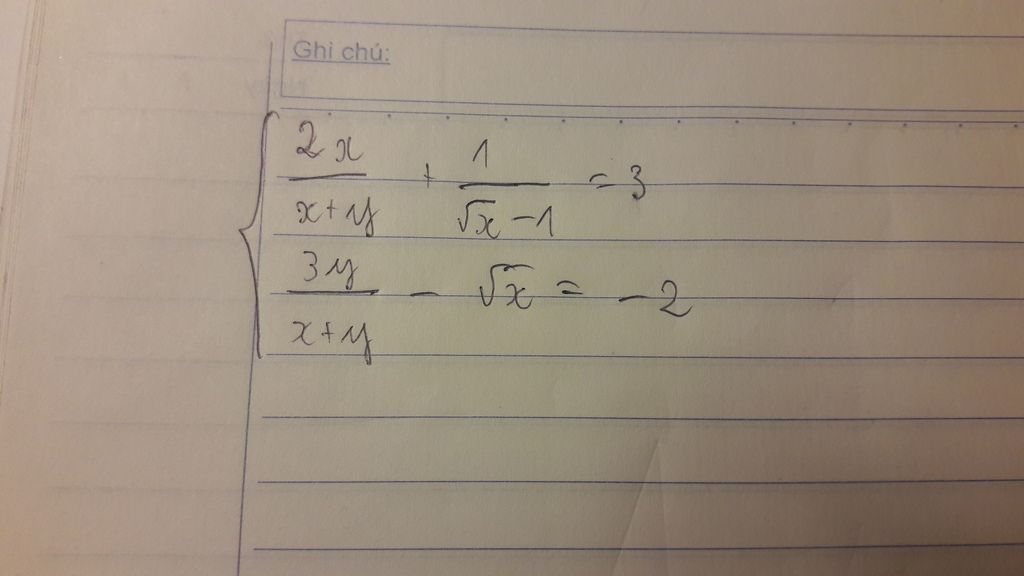 Ghi chú:
2x/(x+y) + 1/(√x - 1) = 3
3y/(x+y) - √x = -2